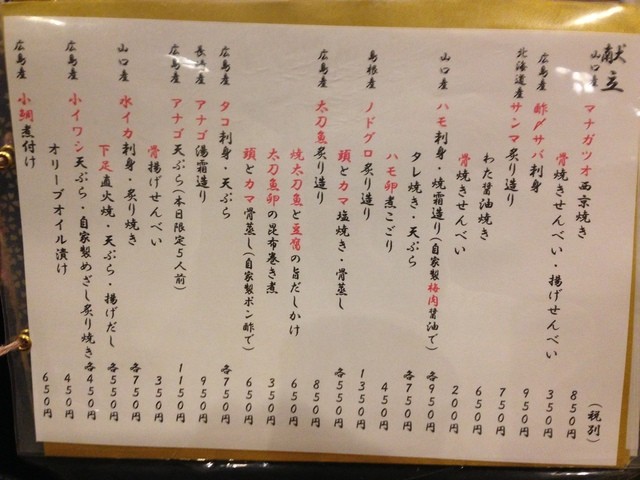 献立
(税別)
山口産 マナガツオ西京焼き 850円
骨焼きせんべい・揚げせんべい 350円
広島産 酢〆サバ刺身 950円
北海道産 サンマ炙り造り 750円
わた醤油焼き 650円
骨焼きせんべい 200円
山口産 ハモ刺身・焼霜造り(自家製梅肉醤油で) 各950円
タレ焼き・天ぷら 各750円
ハモ卵煮こごり 450円
島根産 ノドグロ炙り造り 1350円
頭とカマ塩焼き・骨蒸し 各550円
広島産 太刀魚炙り造り 850円
焼太刀魚と豆腐の旨だしかけ 650円
太刀魚卵の昆布巻き煮 350円
頭とカマ骨蒸し(自家製ポン酢で) 650円
広島産 タコ刺身・天ぷら 各750円
長崎産 アナゴ湯霜造り 950円
広島産 アナゴ天ぷら(本日限定5人前) 1150円
骨揚げせんべい 350円
山口産 水イカ刺身・炙り焼き 各750円
下足直火焼・天ぷら・揚げだし 各550円
広島産 小イワシ天ぷら・自家製めざし炙り焼き 各450円
オリーブオイル漬け 450円
広島産 小鯛煮付け 650円